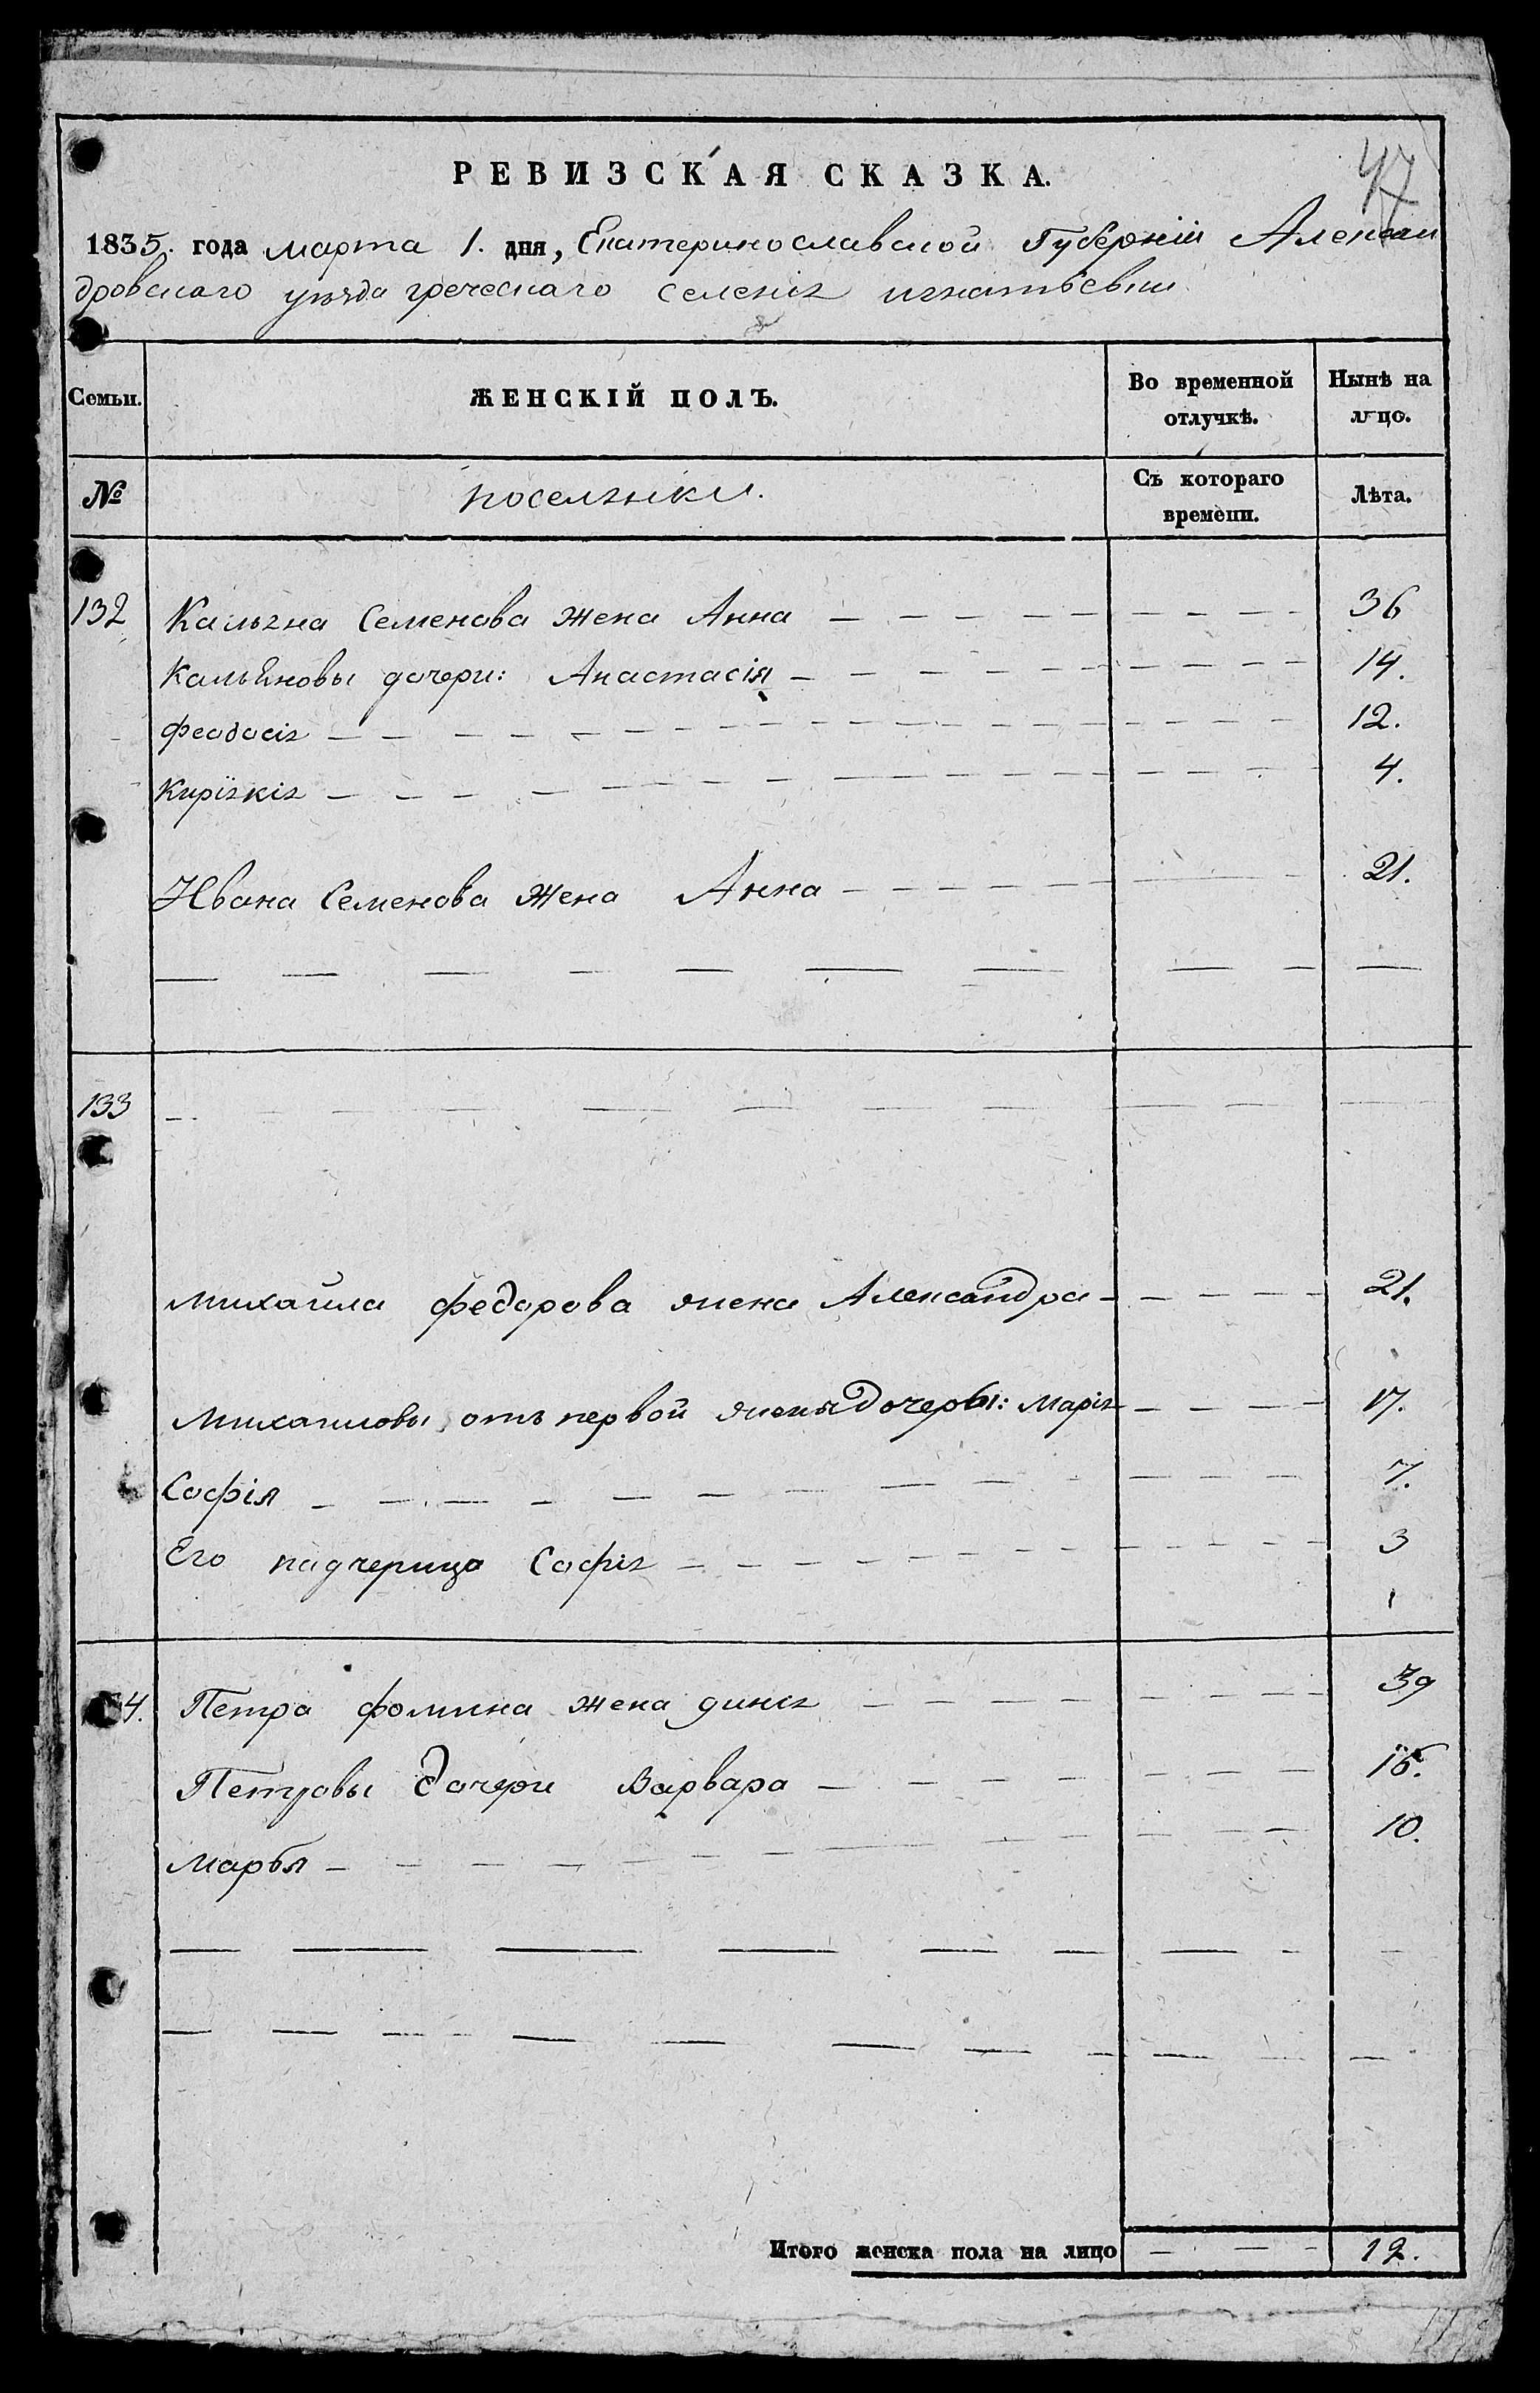 47
РЕВИЗСКАЯ СКАЗКА.
1835. года марта 1. дня, Екатеринославской Губерніи Алексан
дровскаго уѣзда греческаго селенія игнатьевки
Семьи. ЖЕНСКІЙ ПОЛЪ. Во временной отлучкѣ. Нынѣ на лицо.
№ поселянки. Съ котораго времени. Лѣта.
132 Кальяна Семенова жена Анна — 36
Кальяновы дочери: Анастасія — 14.
Феодосія — 12.
Киріякія — 4.
Ивана Семенова жена Анна — 21.
133 —
Михайла Федорова жена Александра — 21.
Михайловы отъ первой жены дочеры: Марія — 17.
Софія — 7.
Его падчерица Софія — 3
4. Петра Фомина жена — 39
Петровы дочери Варвара — 15.
Марья — 10.
Итого женска пола на лицо — 12.